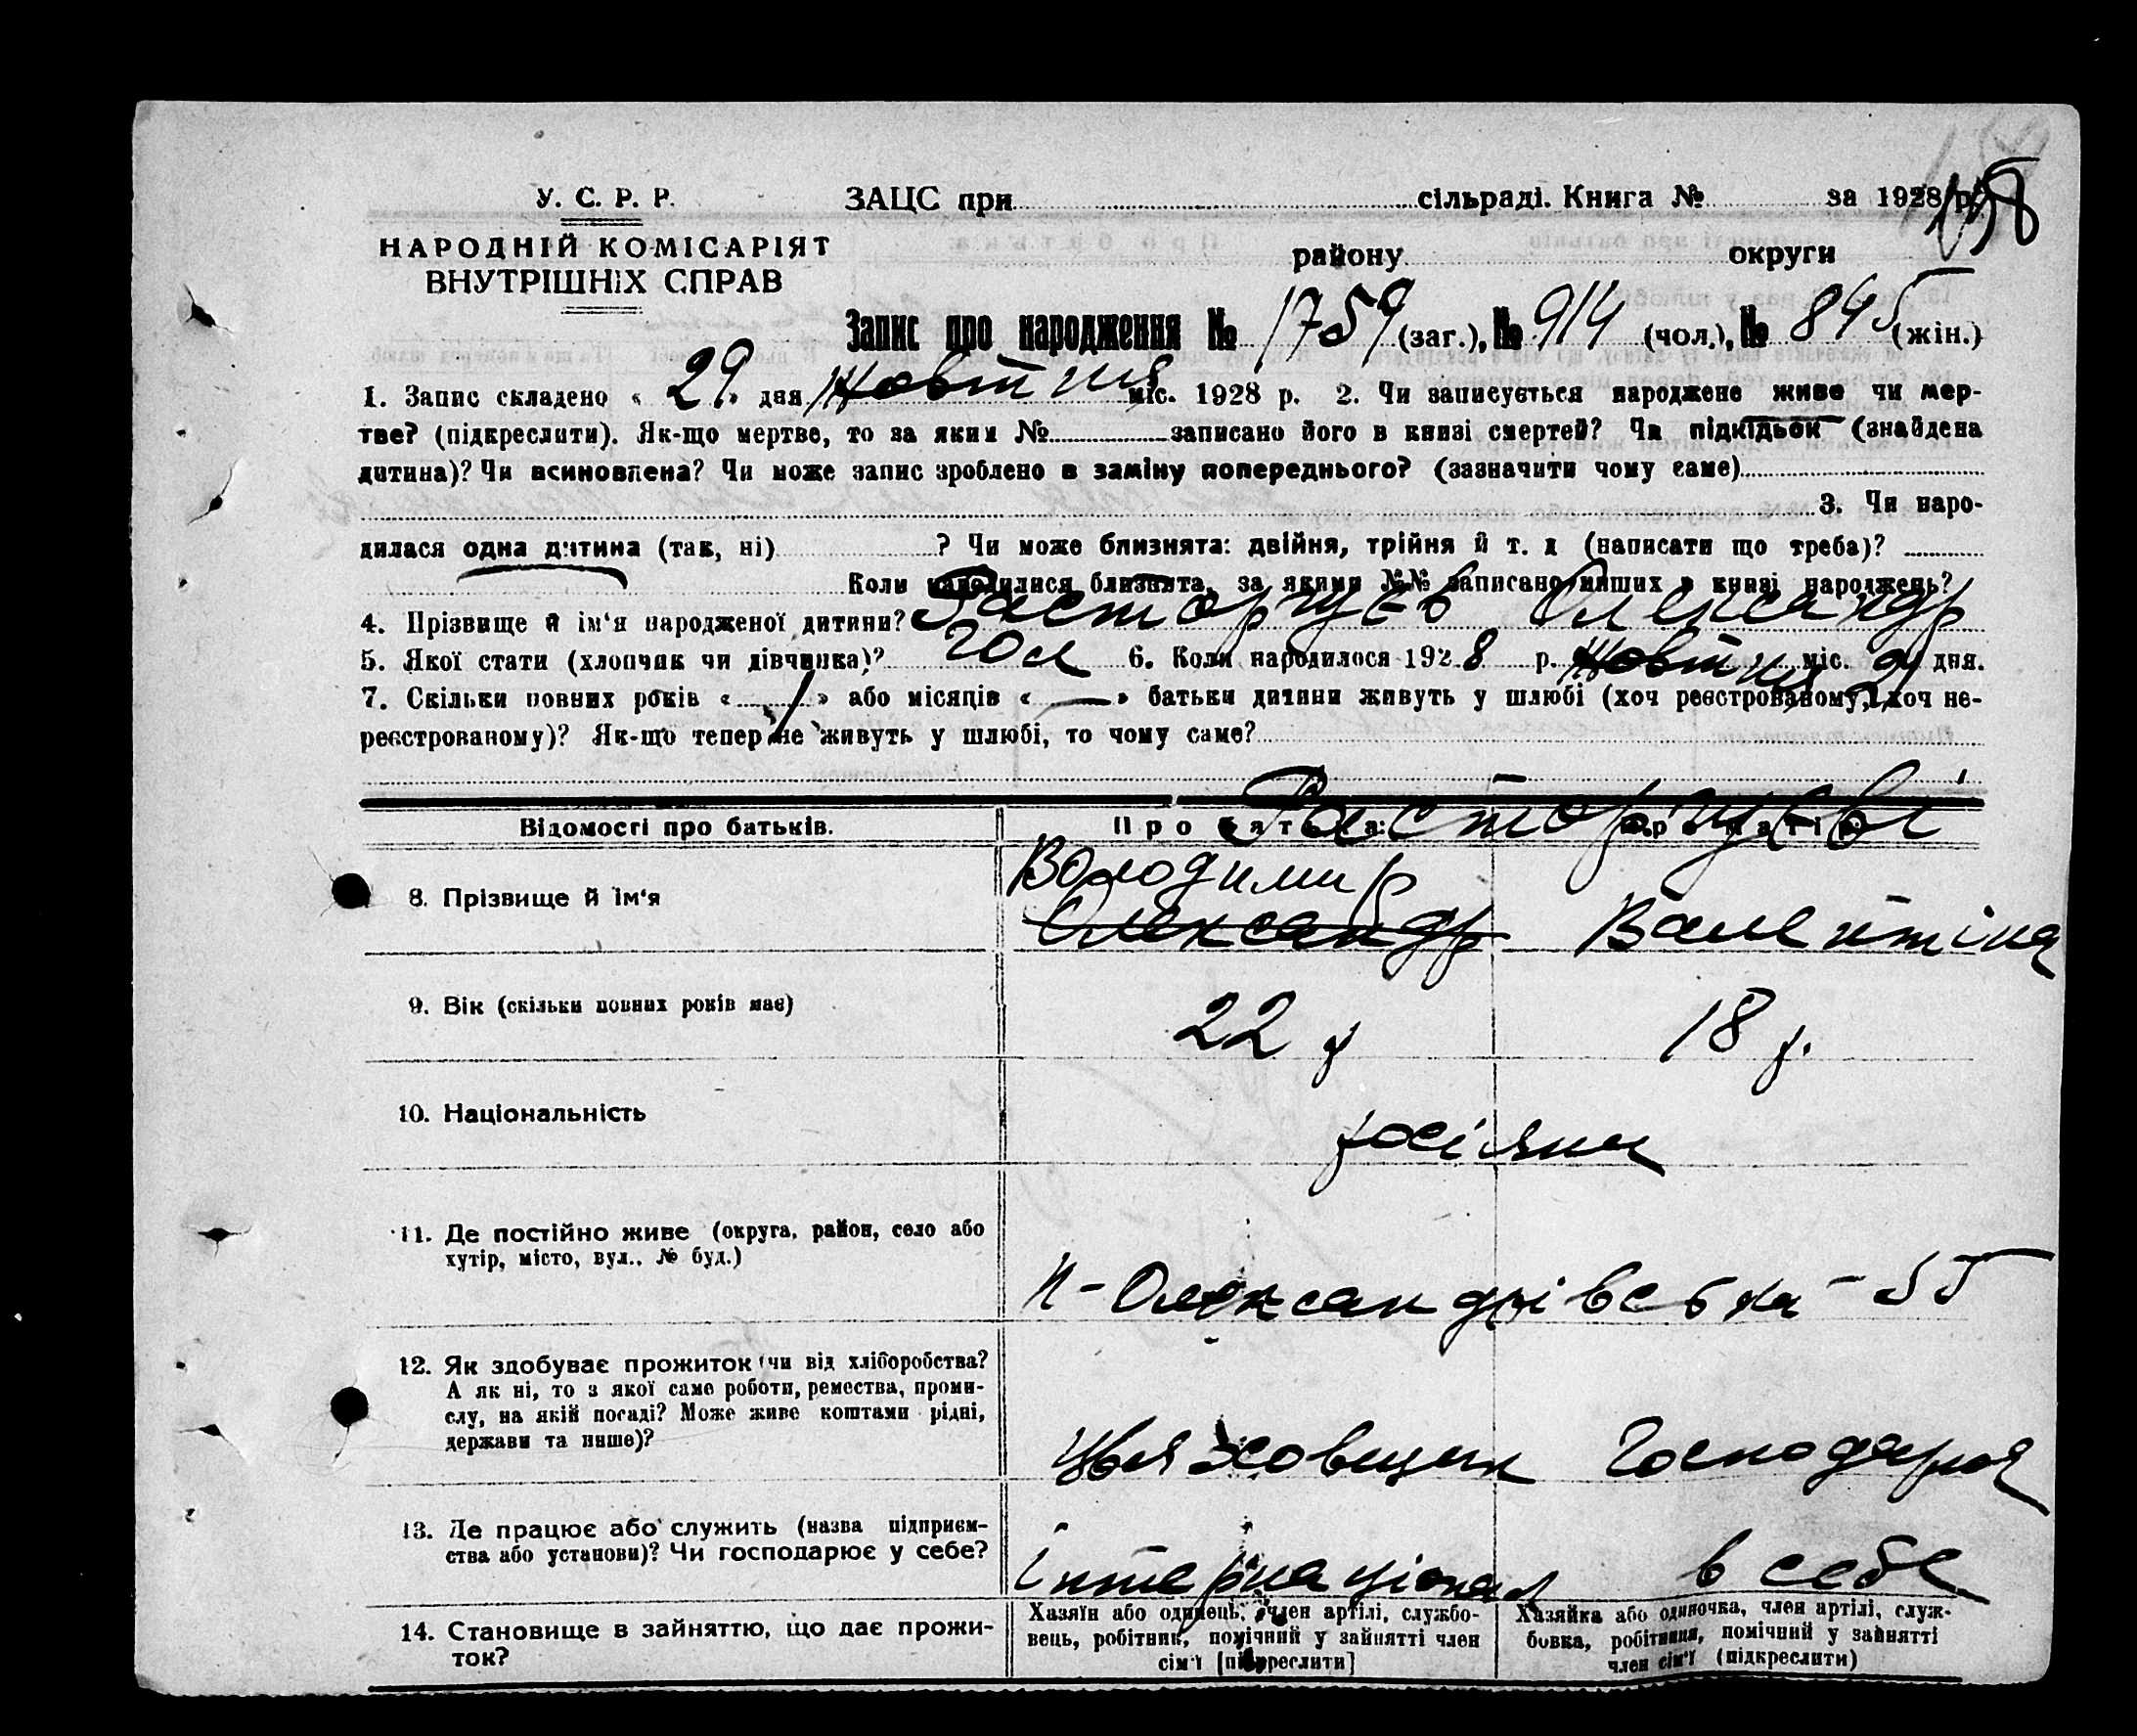 158
У. С. Р. Р.
ЗАЦС при сільраді. Книга № за 1928 р.
НАРОДНІЙ КОМІСАРІЯТ
ВНУТРІШНІХ СПРАВ
району округи
Запис про народження № 1759 (заг.), № 914 (чол.), № 845 (жін.)
1. Запис складено « 29 » дня Жовтня міс. 1928 р. 2. Чи записується народжене живе чи мер-
тве? (підкреслити). Як-що мертве, то за яким № записано його в книзі смертей? Чи підкідьок (знайдена
дитина)? Чи всиновлена? Чи може запис зроблено в заміну попереднього? (зазначити чому саме)
3. Чи наро-
дилася одна дитина (так, ні) ? Чи може близнята: двійня, трійня й т. д (написати що треба)?
Коли народилися близнята, за якими №№ записано инших в книзі народжень?
4. Прізвище й ім'я народженої дитини? Расторгуєв Олександр
5. Якої стати (хлопчик чи дівчинка)? чол 6. Коли народилося 1928 р. Жовтня міс. 21 дня.
7. Скільки повних років « 1 » або місяців « — » батьки дитини живуть у шлюбі (хоч реєстрованому, хоч не-
реєстрованому)? Як-що тепер не живуть у шлюбі, то чому саме?
Расторгуєві
Відомості про батьків. Про батька: Про матір:
8. Прізвище й ім'я
Володимир
Олександр Валентіна
9. Вік (скільки повних років має) 22 р 18 р.
10. Національність росіяни
11. Де постійно живе (округа, район, село або
хутір, місто, вул.. № буд.)
Н-Олександрівська - 55
12. Як здобуває прожиток (чи від хліборобства?
А як ні, то з якої саме роботи, ремества, проми-
слу, на якій посаді? Може живе коштами рідні,
держави та инше)?
Цвяховщик Господарка
13. Де працює або служить (назва підприєм-
ства або установи)? Чи господарює у себе?
Інтернаціонал в себе
14. Становище в зайняттю, що дає прожи-
ток?
Хазяїн або одинець, член артілі, службо-
вець, робітник, помічний у зайнятті член
сім'ї [підкреслити]
Хазяйка або одиночка, член артілі, служ-
бовка, робітниця, помічний у зайнятті
член сім'ї (підкреслити)